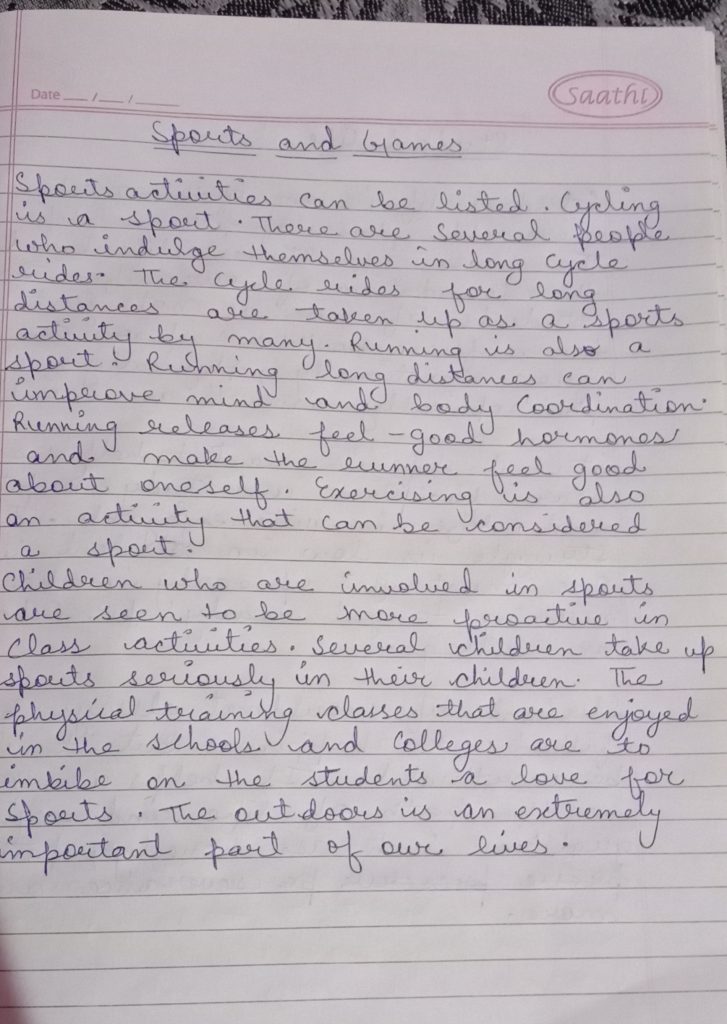 Date __/__/____
Saathi
Sports and Games
Sports activities can be listed. Cycling
is a sport. There are several people
who indulge themselves in long cycle
rides. The cycle rides for long
distances are taken up as a sports
activity by many. Running is also a
sport. Running long distances can
improve mind and body coordination.
Running releases feel-good hormones
and make the runner feel good
about oneself. Exercising is also
an activity that can be considered
a sport.
Children who are involved in sports
are seen to be more proactive in
class activities. Several children take up
sports seriously in their children. The
physical training classes that are enjoyed
in the schools and colleges are to
imbibe on the students a love for
sports. The outdoors is an extremely
important part of our lives.